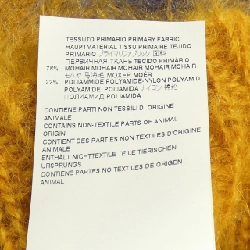 TESSUTO PRIMARIO PRIMARY FABRIC
HAUPTMATERIAL TISSU PRIMAIRE TEJIDO
PRIMARIO
ПЕРВИЧНАЯ ТКАНЬ TECIDO PRIMARIO
MOHAIR MOHAIR MOHAIR MOHAIR
MOXEP MOER
POLIAMMIDE POLYAMIDE-NYLON POLYAMID
POLYAMIDE POLIAMIDA ナイロン
ПОЛИАМИД POLIAMIDA
CONTIENE PARTI NON TESSILI D' ORIGINE
ANIMALE
CONTAINS NON-TEXTILE PARTS OF ANIMAL
ORIGIN
CONTIENT DES PARTIES NON TEXTILES D'ORIGINE
ANIMALE
ENTHÄLT NICHTTEXTILE TEILE TIERISCHEN
URSPRUNGS
CONTIENE PARTES NO TEXTILES DE ORIGEN
ANIMAL